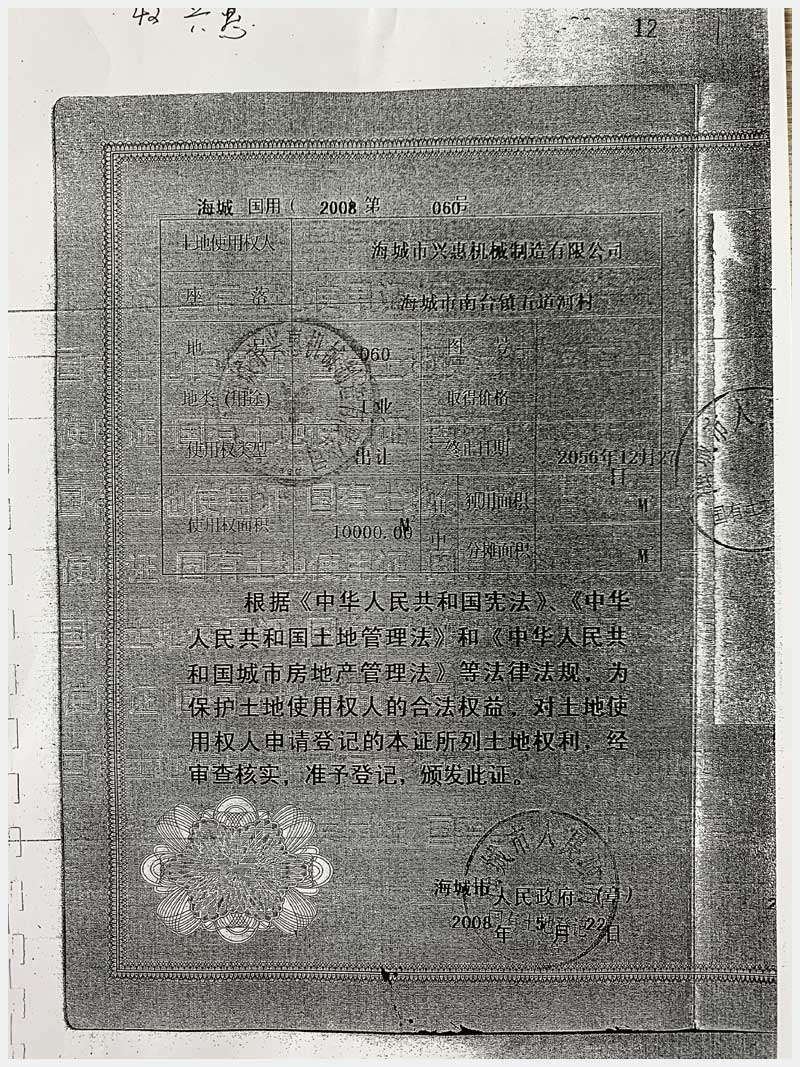 兴惠
12
海城 国用( 2008 第 060号
土地使用权人 海城市兴惠机械制造有限公司
座落 海城市南台镇五道河村
地 060 图号
地类(用途) 工业 取得价格
使用权类型 出让 终止日期 2056年12月27日
使用权面积 10000.00 M 其中 独用面积 M
分摊面积 M
根据《中华人民共和国宪法》、《中华
人民共和国土地管理法》和《中华人民共
和国城市房地产管理法》等法律法规，为
保护土地使用权人的合法权益，对土地使
用权人申请登记的本证所列土地权利，经
审查核实，准予登记，颁发此证。
海城市 人民政府 (章)
2008年 5月 22日